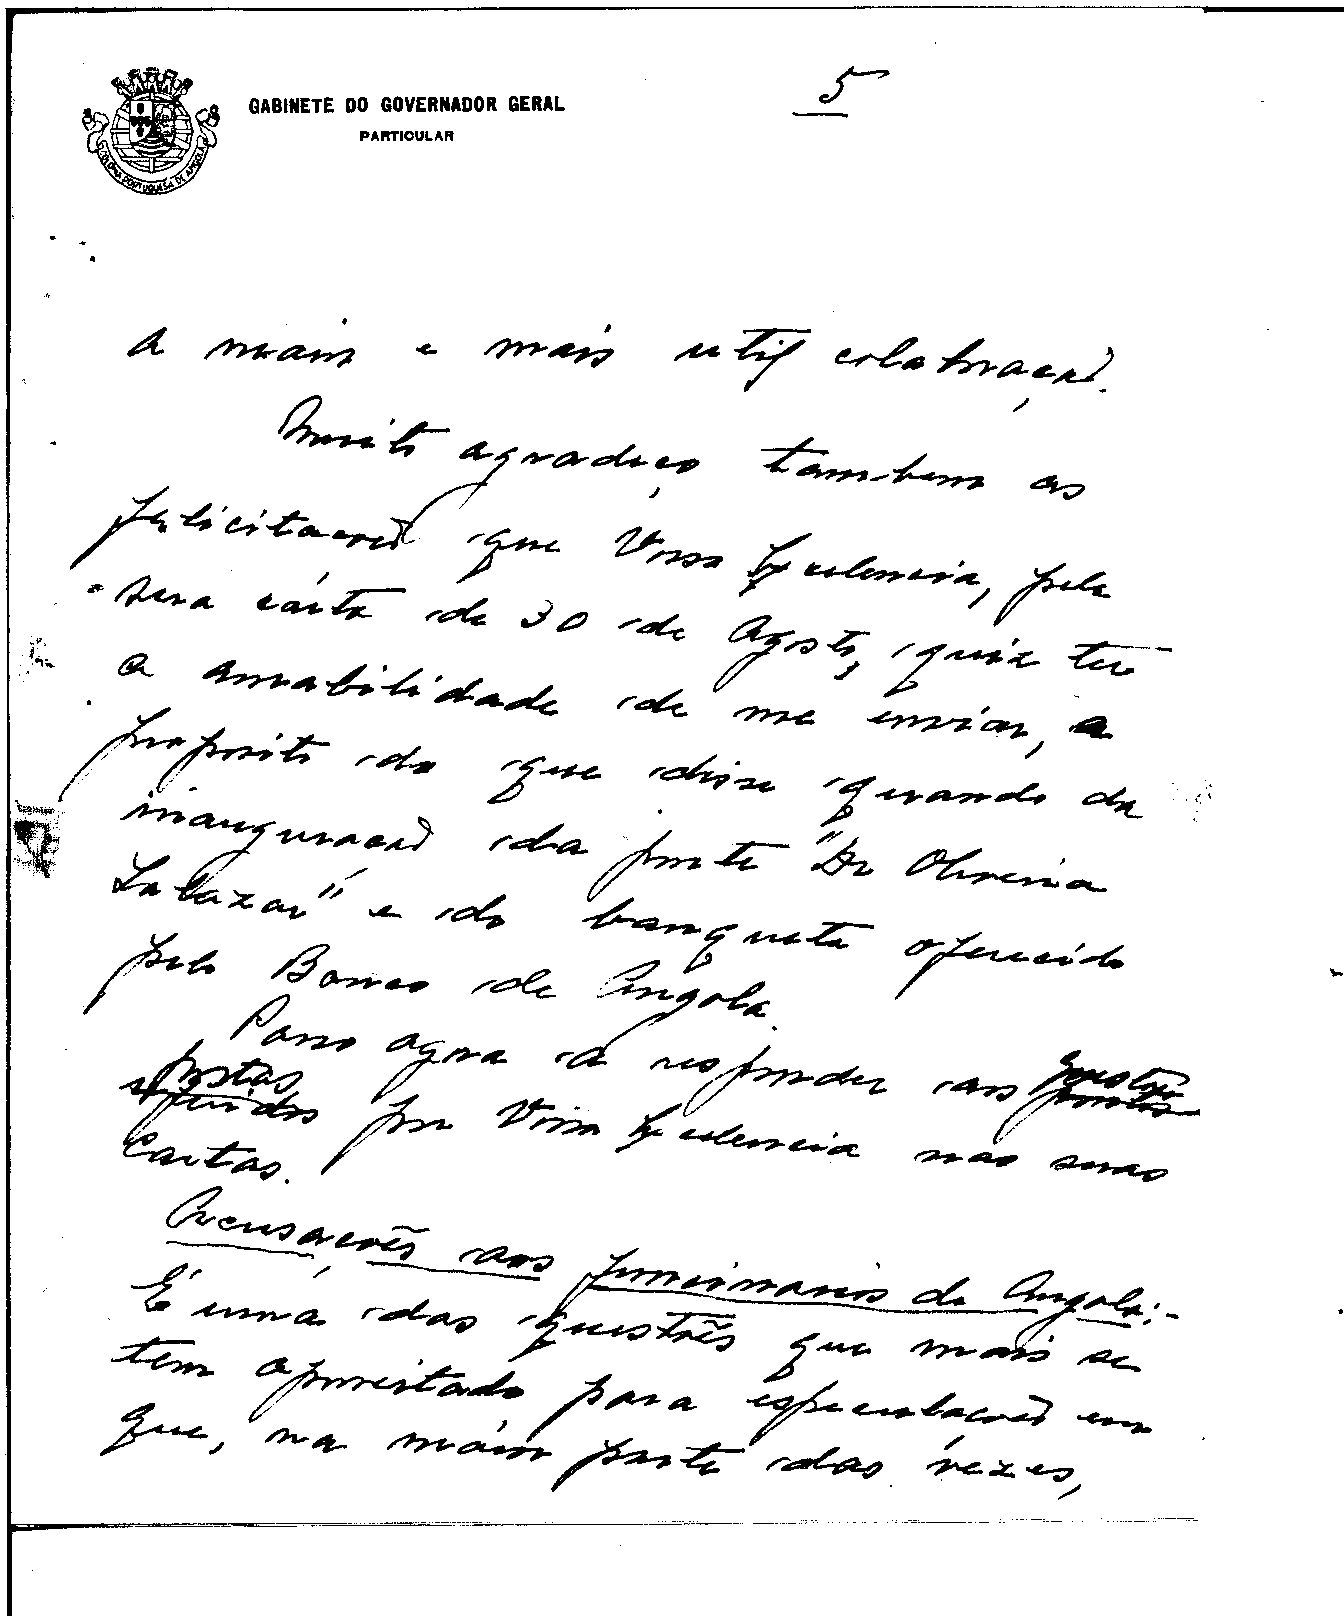 GABINETE DO GOVERNADOR GERAL
PARTICULAR
5
COLONIA PORTUGUESA DE ANGOLA
a maior e mais util colaboração.
Muito agradeço tambem as
felicitações que Vossa Excelencia, pela
sua carta de 30 de Agosto, quiz ter
a amabilidade de me enviar, a
proposito do que disse quando da
inauguração da ponte "Dr Oliveira
Salazar" e do banquete oferecido
pelo Banco de Angola.
Passo agora a responder aos pontos questões
referidos postas por Vossa Excelencia nas suas
Cartas.
Acusações aos funcionarios de Angola:-
É uma das questões que mais se
tem aproveitado para especulações em
que, na maior parte das vezes,